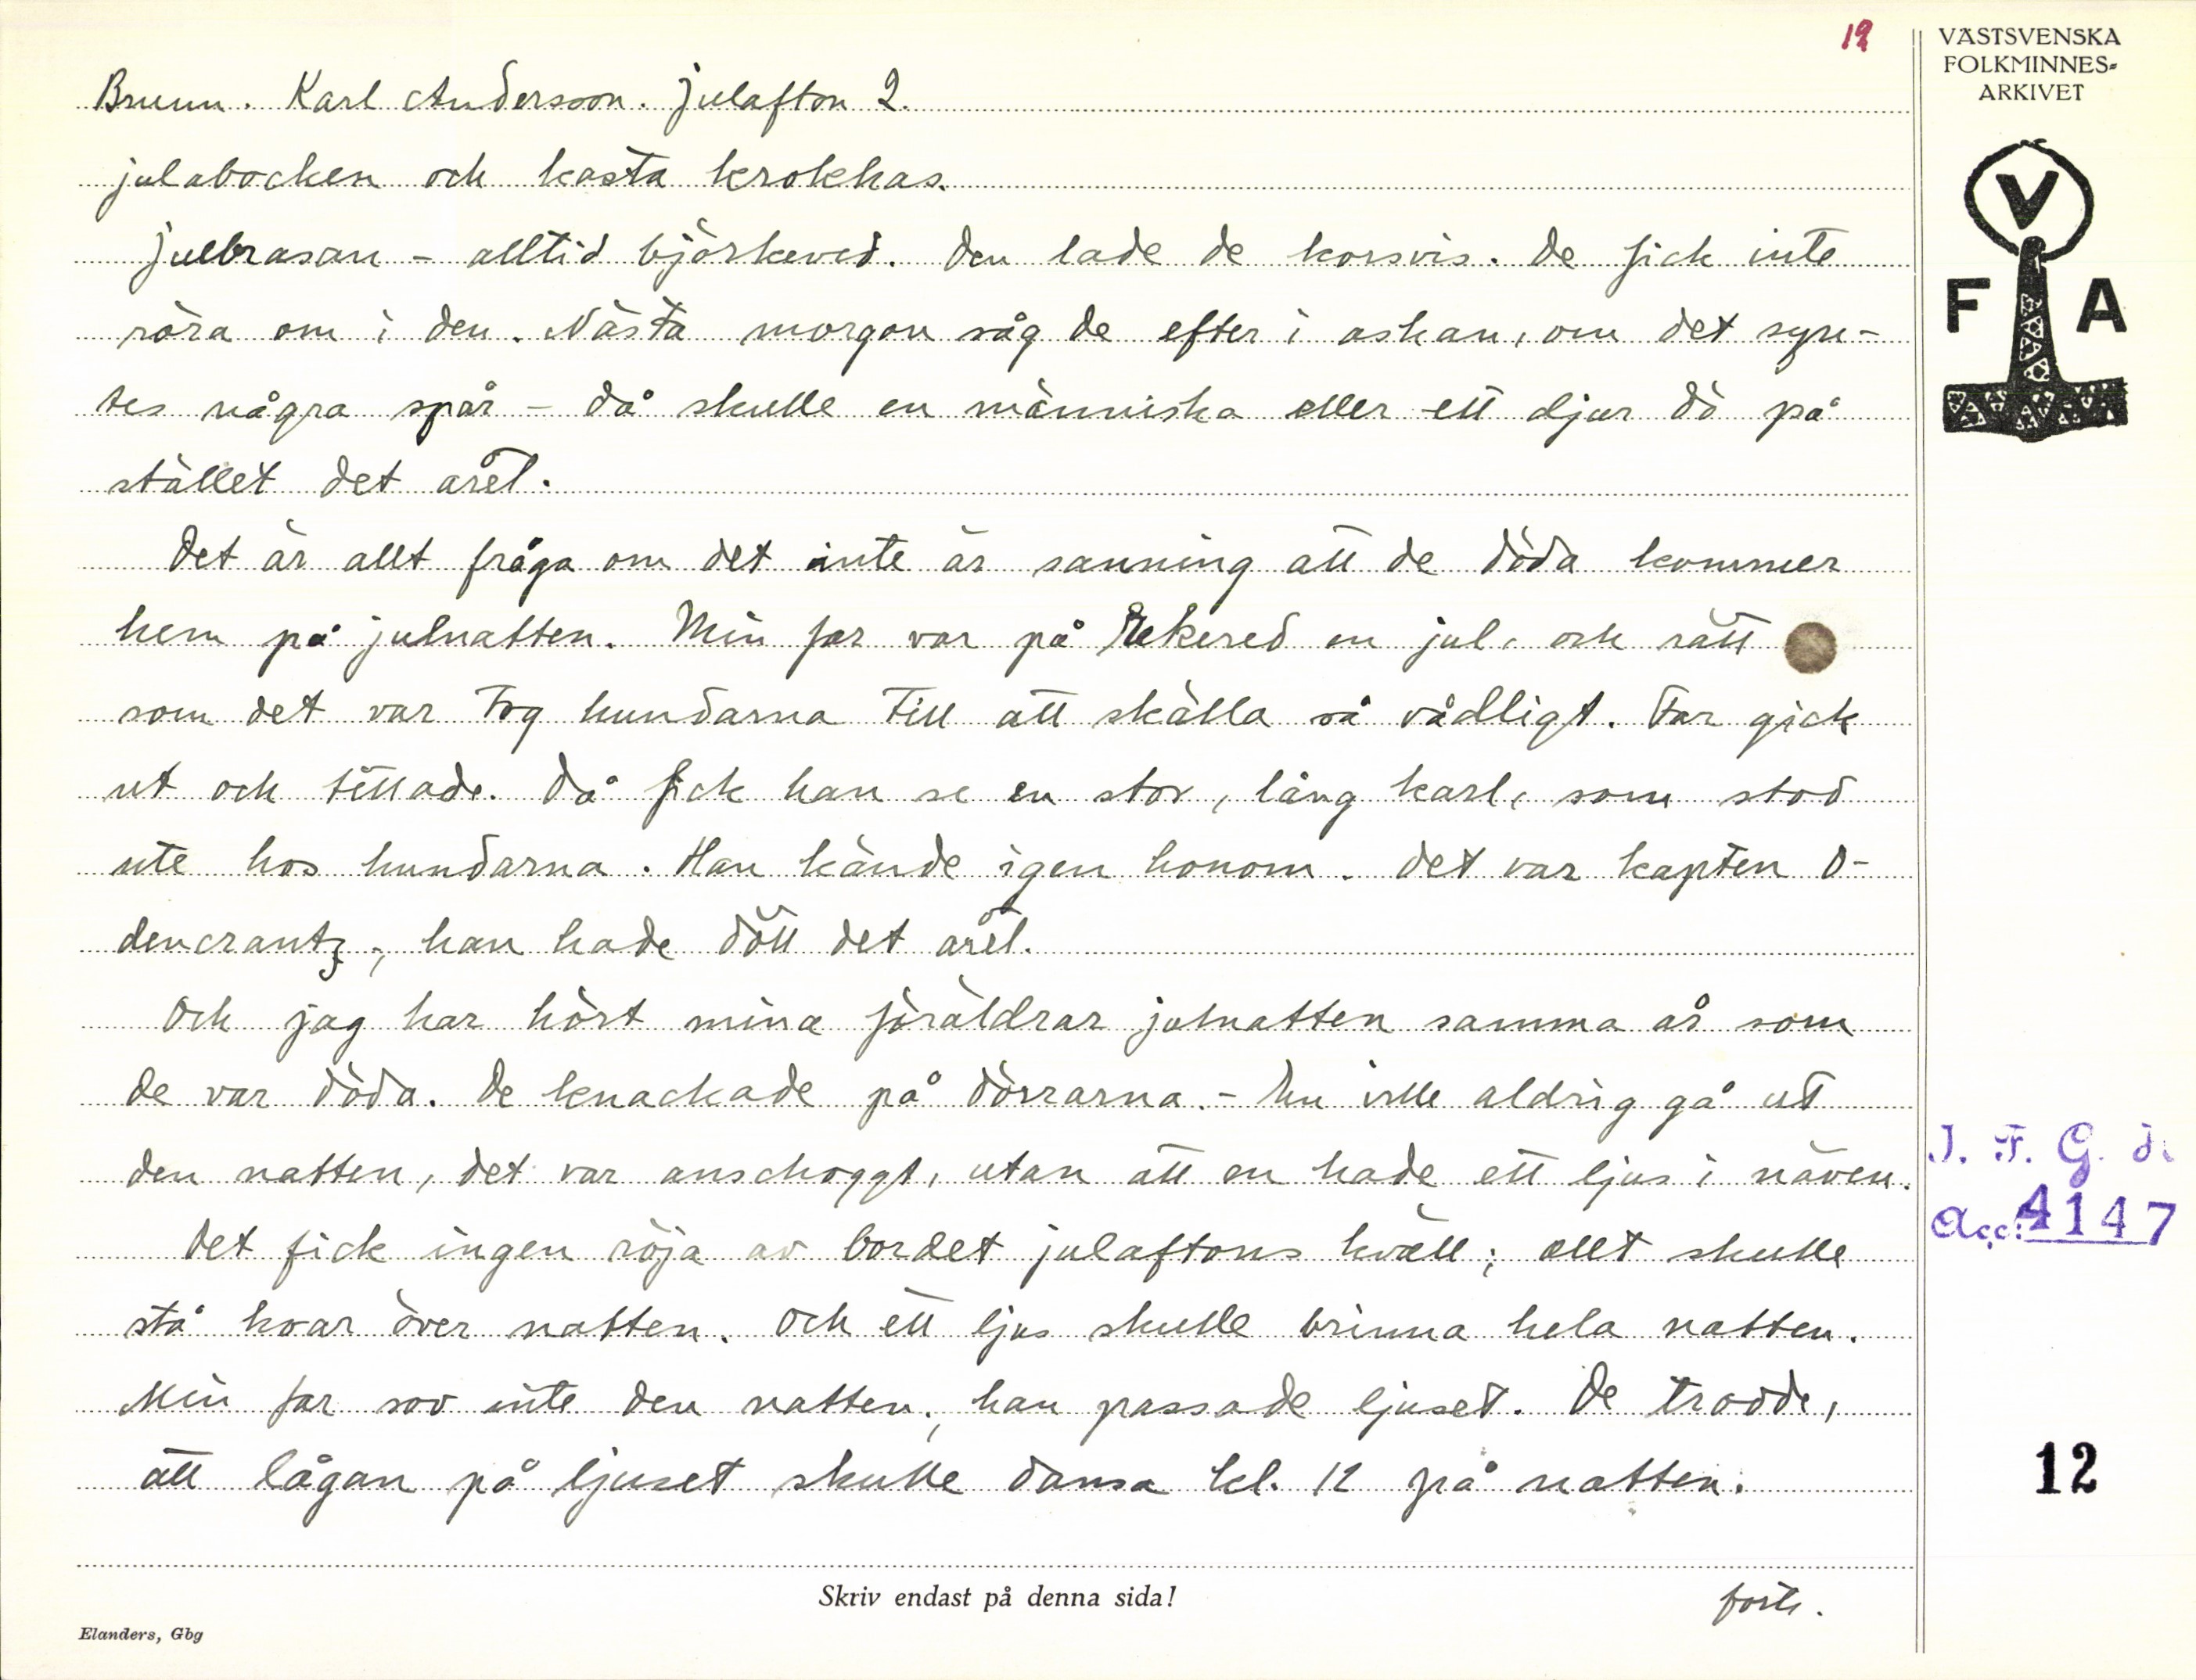 12
Brunn. Karl Andersson. Julafton 2.
julabocken och kasta krokhas.
Julbrasan - alltid björkeved. Den lade de korsvis. De fick inte
röra om i den. Nästa morgon såg de efter i askan, om det syn-
tes några spår - då skulle en människa eller ett djur dö på
stället det året.
Det är allt fråga om det inte är sanning att de döda kommer
hem på julnatten. Min far var på Rekered en jul, och rätt
som det var tog hundarna till att skälla så vådligt. Far gick
ut och tittade. Då fick han se en stor, lång karl, som stod
ute hos hundarna. Han kände igen honom. Det var kapten O-
dencrantz, han hade dött det året.
Och jag har hört mina föräldrar julnatten samma år som
de var döda. De knackade på dörrarna. - En ville aldrig gå ut
den natten, det var anschoggt, utan att en hade ett ljus i näven.
Det fick ingen röja av bordet julaftons kväll; allt skulle
stå kvar över natten. Och ett ljus skulle brinna hela natten.
Min far sov inte den natten, han passade ljuset. De trodde,
att lågan på ljuset skulle dansa kl. 12 på natten.
forts.
Skriv endast på denna sida!
Elanders, Gbg
VÄSTSVENSKA
FOLKMINNES-
ARKIVET
V
F A
I. F. G. d.
Acc: 4147
12